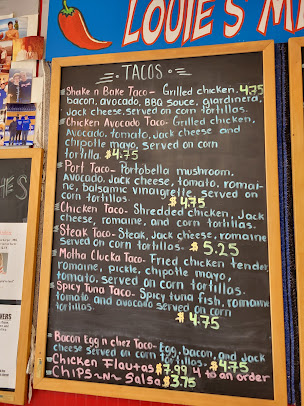 LOUIE'S M
TACOS
Shake n Bake Taco - Grilled chicken, 4.75
bacon, avocado, BBQ sauce, giardinera,
Jack cheese, served on corn tortillas.
Chicken Avocado Taco - Grilled chicken,
Avocado, tomato, Jack cheese and
chipotle mayo, served on corn
tortilla. $4.75
Port Taco - Portobella mushroom,
Avocado, Jack cheese, tomato, romai-
ne, balsamic vinaigrette, served on
corn tortillas. $4.75
Chicken Taco - Shredded chicken, Jack
cheese, romaine, and corn tortillas.
Steak Taco - Steak, Jack cheese, romaine
served on corn tortillas - $5.25
Motha Clucka Taco - Fried chicken tender,
romaine, pickle, chipotle mayo,
tomato, served on corn tortillas.
Spicy Tuna Taco - Spicy tuna fish, romaine
tomato and avocado served on corn
tortillas. $4.75
Bacon Egg n chez Taco - Egg, bacon, and Jack
cheese served on corn tortillas. $4.75
Chicken Flautas $7.99 4 to an order
Chips ~N~ Salsa $3.75